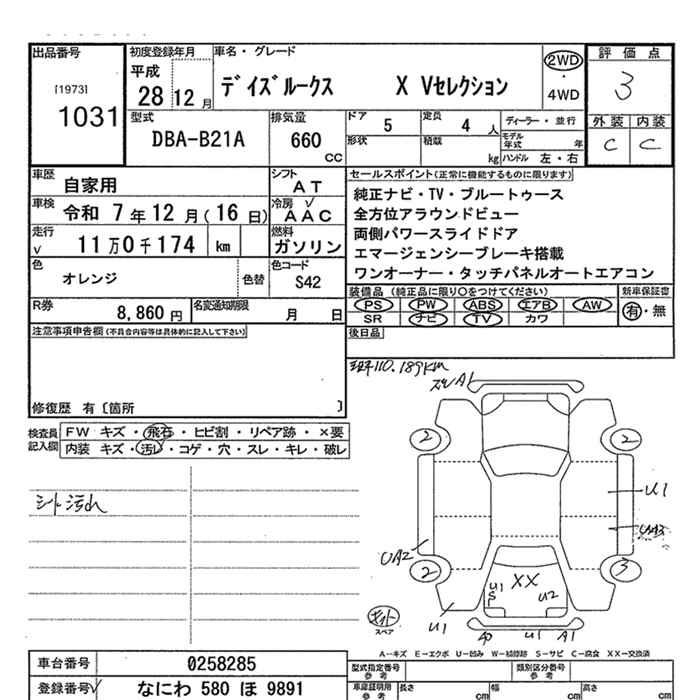 出品番号
[1973]
1031
初度登録年月
平成
28 12月
車名・グレード
デイズルークス X Vセレクション
2WD
・
4WD
評価点
3
外装 内装
C C
型式
DBA-B21A
排気量
660
CC
ドア
5
定員
4 人
形状
積載
kg
ディーラー・並行
モデル年式 年
ハンドル 左・右
車歴
自家用
シフト
AT
車検
令和 7年 12月(16日)
冷房
AAC
走行
11万0千174 km
燃料
ガソリン
色
オレンジ
色替
色コード
S42
R券
8,860 円
名変通知期限
月 日
セールスポイント(正常に機能するものに限ります)
純正ナビ・TV・ブルートゥース
全方位アラウンドビュー
両側パワースライドドア
エマージェンシーブレーキ搭載
ワンオーナー・タッチパネルオートエアコン
装備品(純正品に限り○をつけてください)
PS PW ABS エアB AW
SR ナビ TV カワ
新車保証書
有・無
後日品
注意事項申告欄(不具合内容等は具体的に記入して下さい)
修復歴 有〔箇所 〕
検査員記入欄
FW キズ・飛石・ヒビ割・リペア跡・×要
内装 キズ・汚レ・コゲ・穴・スレ・キレ・破レ
シート汚れ
110.189km
A1
2
2
U1
UA2
2
3
XX
U1
S
U2
U1
U1
A1
スペア
A-キズ E-エクボ U-凹み W-補修跡 S-サビ C-腐食 XX-交換済
車台番号
0258285
登録番号
なにわ 580 ほ 9891
型式指定番号
参考
類別区分番号
参考
車庫証明用
参考
長さ cm
幅 cm
高さ cm